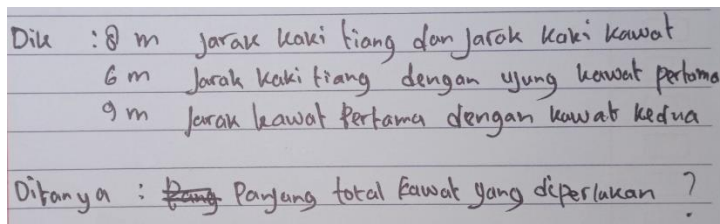 Dik : 8 m jarak kaki tiang dan jarak kaki kawat
6 m jarak kaki tiang dengan ujung kawat pertama
9 m jarak kawat pertama dengan kawat kedua
Ditanya : Panjang total kawat yang diperlukan ?